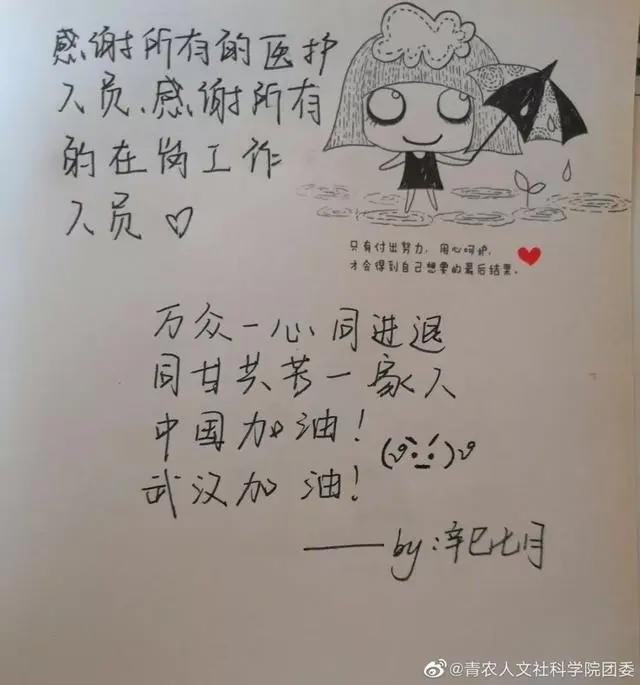 感谢所有的医护
人员、感谢所有
的在岗工作
人员♡
只有付出努力,用心呵护,
才会得到自己想要的最后结果。
万众一心同进退
同甘共苦一家人
中国加油!
武汉加油!
——by:辛巳七月
@青农人文社科学院团委